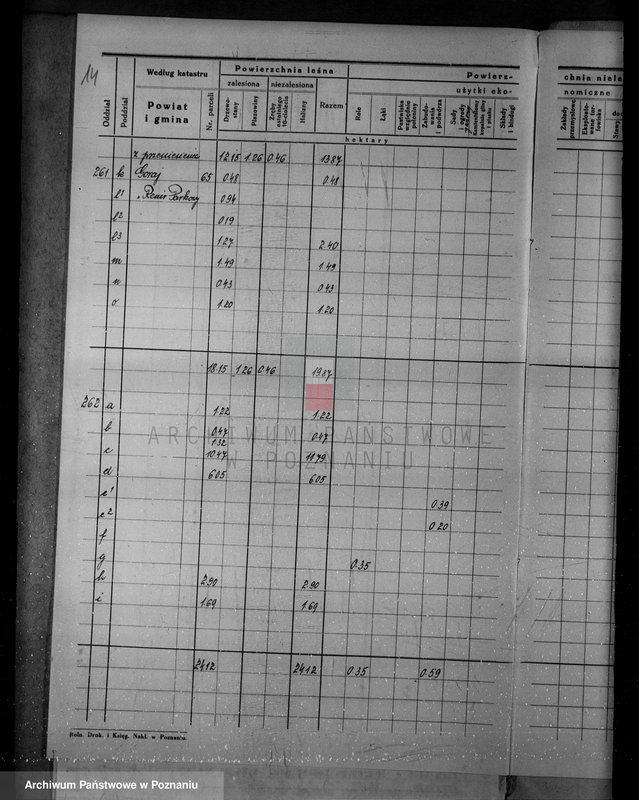 14
Oddział Poddział Według katastru Powierzchnia leśna Powierz- chnia niele
zalesiona niezalesiona użytki eko- nomiczne
Powiat i gmina Nr. parceli Drzewostany Płazowiny Zręby ostatniego 10-ciolecia Halizny Razem Role Łąki Pastwiska względnie połoniny Zabudowania i podwórza Składy i bindugi Zakłady przemysłowe
hektary
z przeniesienia 12.15 1.26 0.46 13.87
261 k Goraj 65 0.48 0.48
l1 0.94
l2 0.19
l3 1.27 2.40
m 1.49 1.49
n 0.43 0.43
o 1.20 1.20
18.15 1.26 0.46 19.87
262 a 1.22 1.22
b 0.47 0.47
1.32
c 10.47 11.79
d 6.05 6.05
e1 0.39
e2 0.20
f
g 0.35
h 2.90 2.90
i 1.69 1.69
24.12 24.12 0.35 0.59
Roln. Druk. i Księg. Nakł. w Poznaniu.
ARCHIWUM PAŃSTWOWE
W POZNANIU
Archiwum Państwowe w Poznaniu